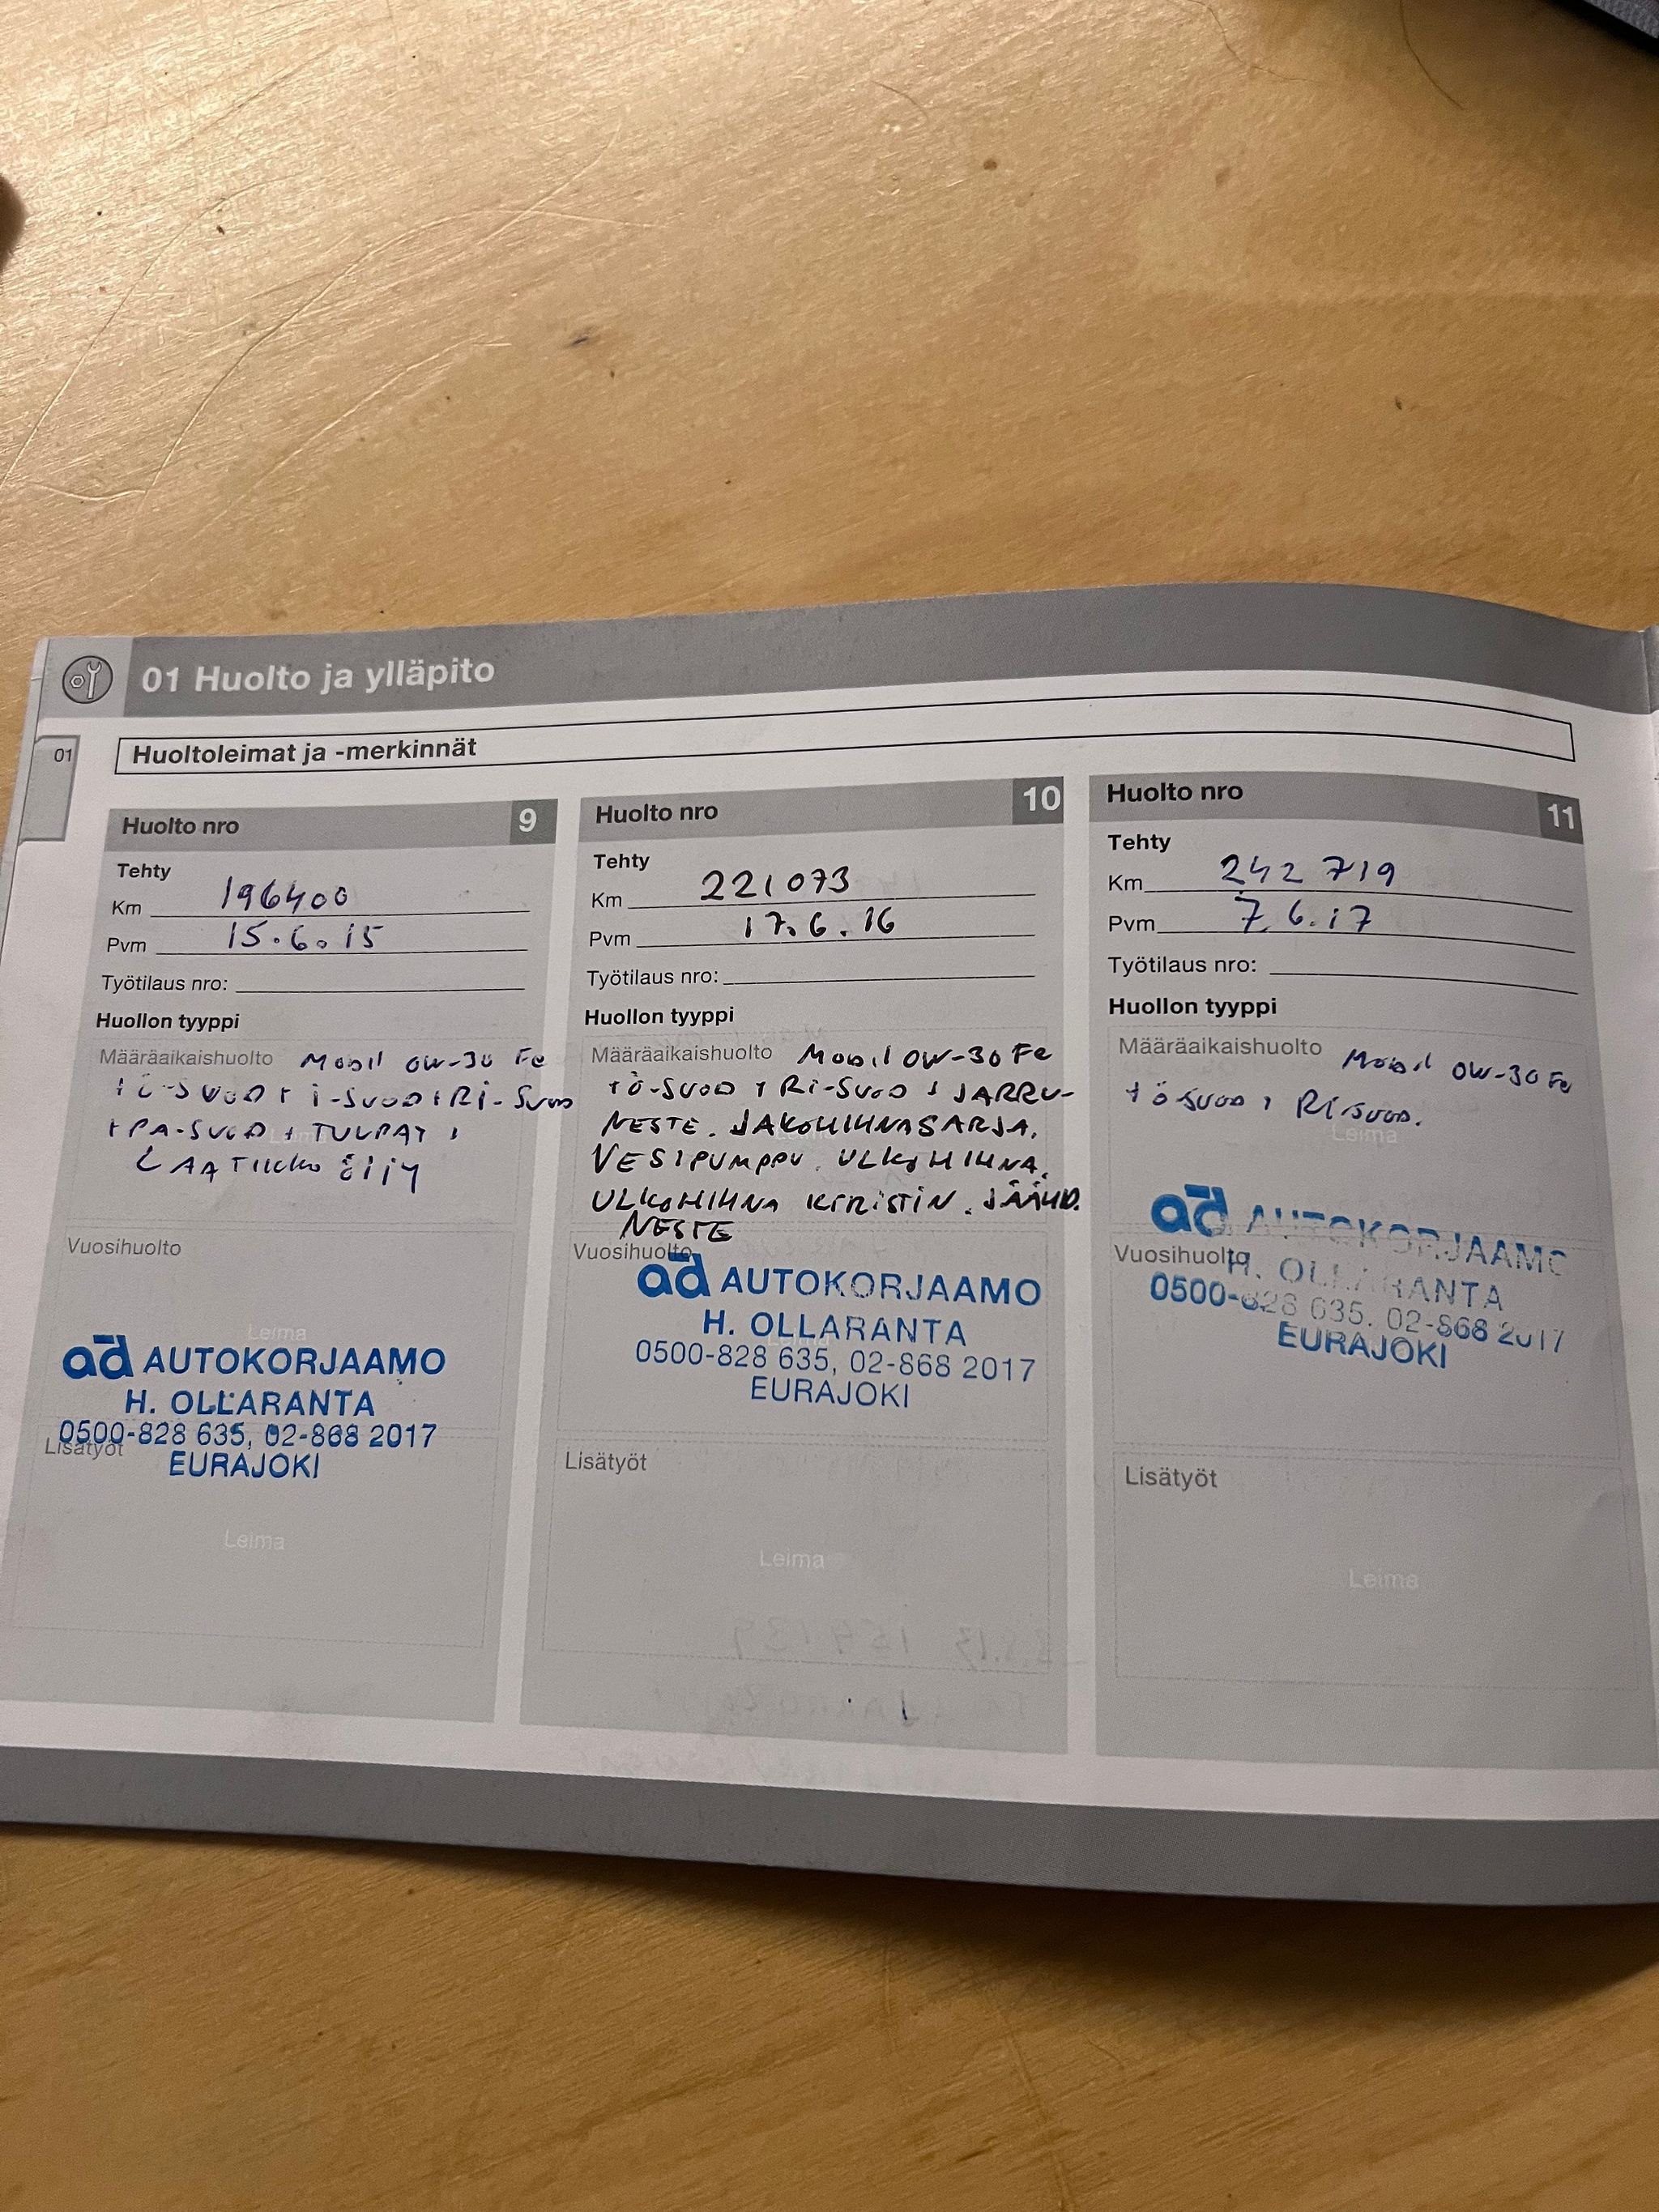 01 Huolto ja ylläpito
01
Huoltoleimat ja -merkinnät
Huolto nro 9
Tehty
Km 196400
Pvm 15.6.15
Työtilaus nro:
Huollon tyyppi
Määräaikaishuolto Mobil 0W-30 Fe
+ Ö-SUOD + i-SUOD + Ri-SUOD
+ PA-SUOD + TULPAT +
LAATIKKO ÖLJY
Vuosihuolto
Leima
ad AUTOKORJAAMO
H. OLLARANTA
0500-828 635, 02-868 2017
Lisätyöt
EURAJOKI
Leima
Huolto nro 10
Tehty
Km 221073
Pvm 17.6.16
Työtilaus nro:
Huollon tyyppi
Määräaikaishuolto Mobil 0W-30 Fe
+ Ö-SUOD + Ri-SUOD + JARRU-
NESTE. JAKOHIHNASARJA.
VESIPUMPPU. ULKOHIHNA.
ULKOHIHNA KIRISTIN. JÄÄHD.
NESTE
Vuosihuolto
ad AUTOKORJAAMO
H. OLLARANTA
0500-828 635, 02-868 2017
EURAJOKI
Lisätyöt
Leima
Huolto nro 11
Tehty
Km 242 719
Pvm 7.6.17
Työtilaus nro:
Huollon tyyppi
Määräaikaishuolto Mobil 0W-30 Fe
+ Ö-SUOD + Ri-SUOD.
Leima
ad AUTOKORJAAMO
Vuosihuolto
H. OLLARANTA
0500-828 635. 02-868 2017
EURAJOKI
Lisätyöt
Leima